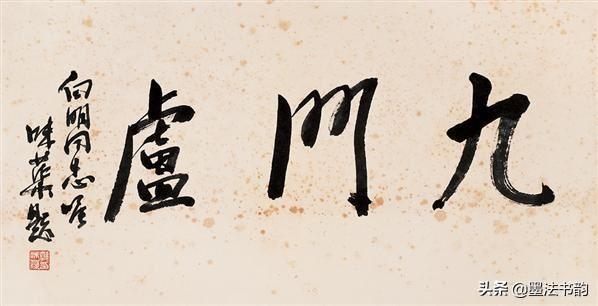 九門盧
向明同志
味蕖題
头条 @墨法书韵